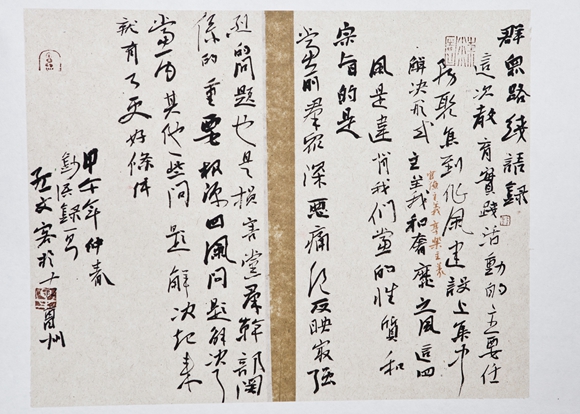 群眾路綫語録
這次教育實踐活動的主要任
務聚焦到作風建設上集中
解决形式主義和奢靡之風這四
官僚主義享樂主義
風是違背我們黨的性質和
宗旨的是
當前羣眾深惡痛绝反映最強
烈的問題也是損害黨羣幹部関
係的重要根源四風問題解决了
黨内其他些問題解决起来
就有了更好條件
甲午年仲春
語録一号
文於
州